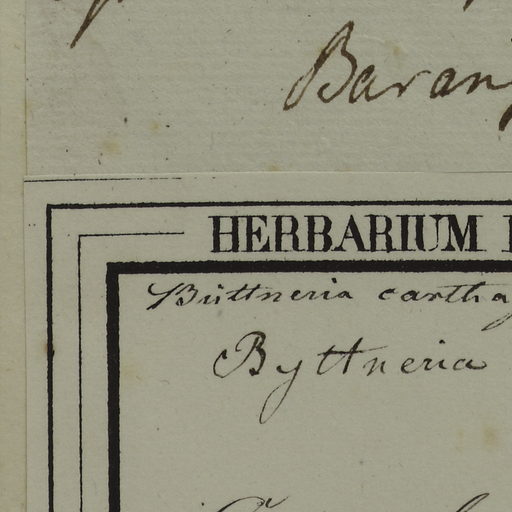 Baran
HERBARIUM
Büttneria carthag
Byttneria